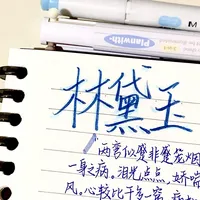 Planwith
林黛玉
两弯似蹙非蹙笼烟
一身之病。泪光点点，娇喘
风。心较比干多一窍，病如